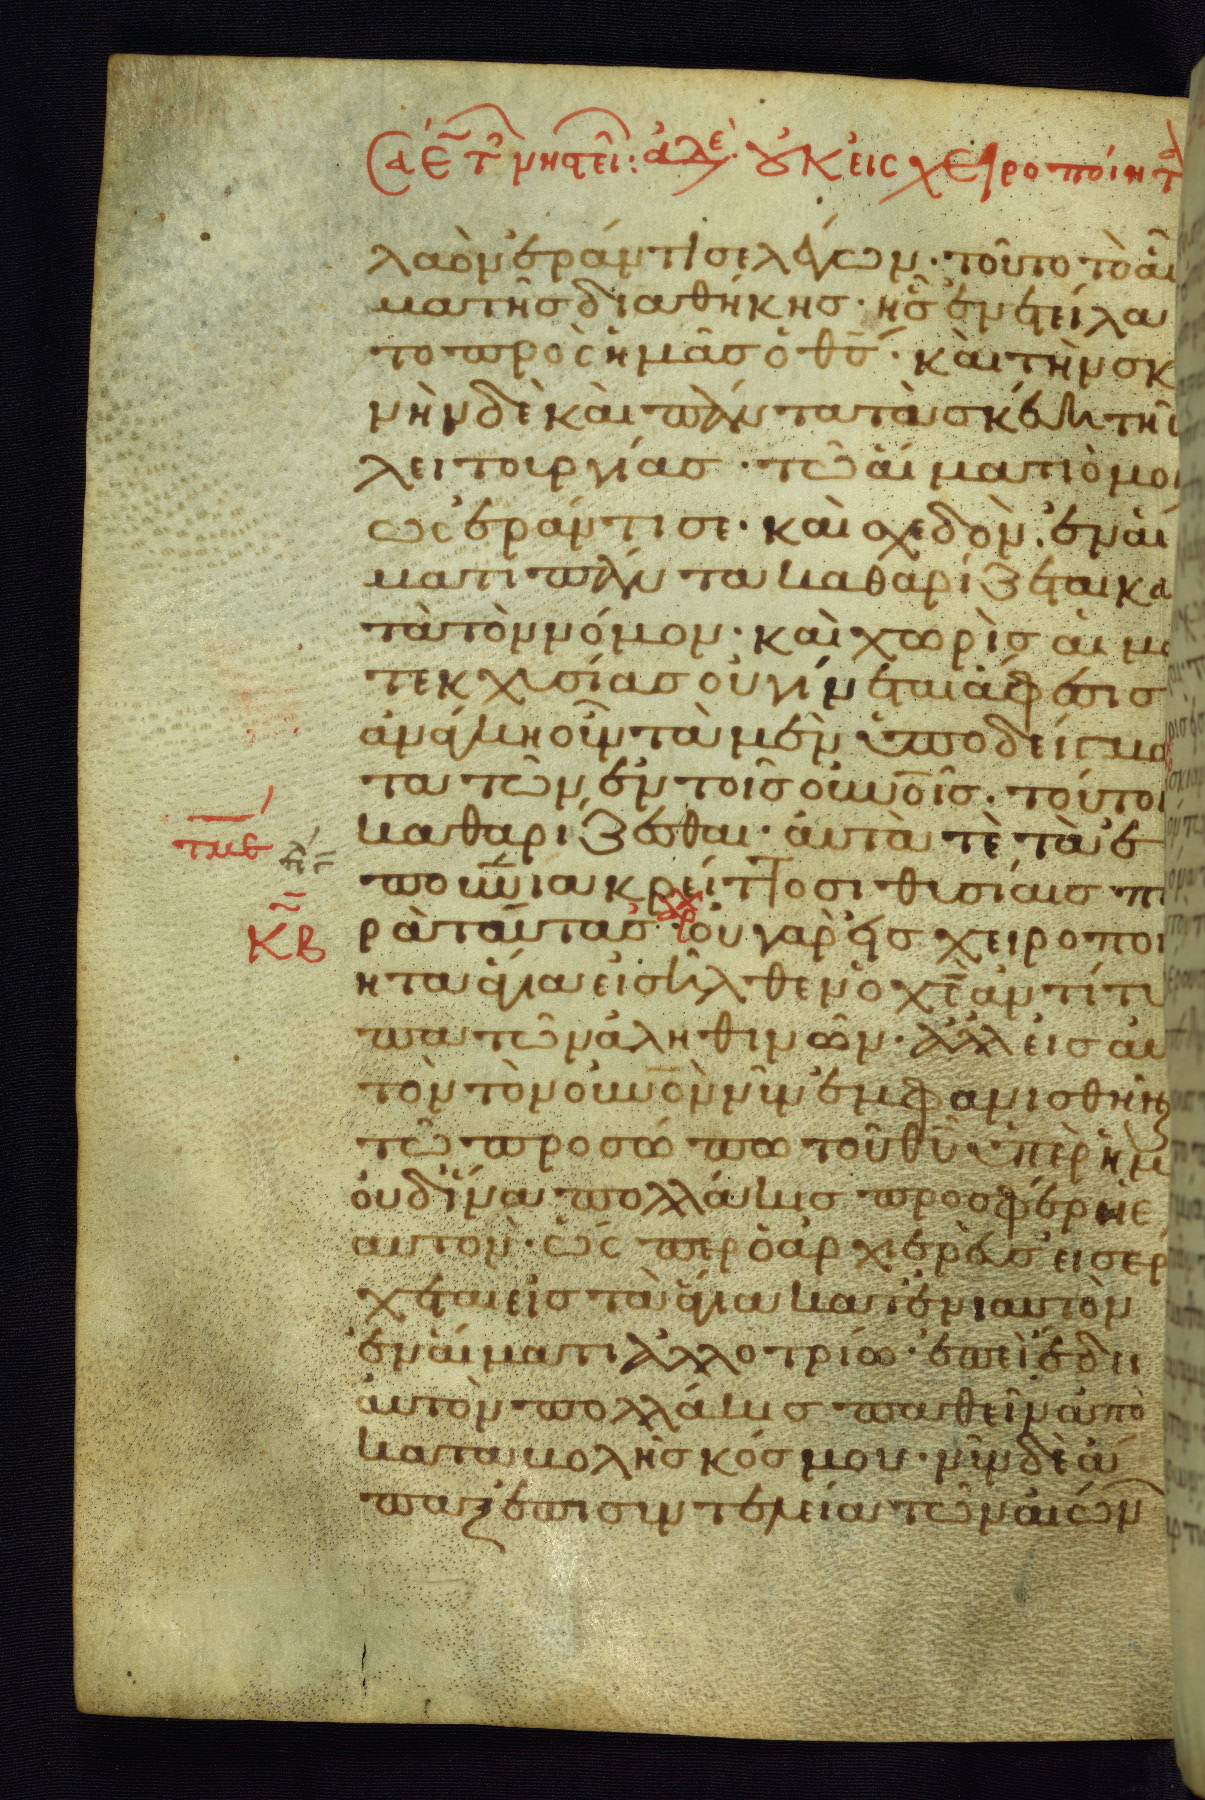 Σα Ε τ νηστει: αλε. οὐκ εἰς χειροποίητ
λαὸν ἐράντισε λέγων· τοῦτο τὸ αἷ
μα τῆς διαθήκης· ἧς ἐνετείλα
το πρὸς ἡμᾶς ὁ θς· καὶ τὴν σκ
νὴν δὲ καὶ πάντα τὰ σκεύη τῆς
λειτουργίας· τῶ αἵματι ὁμοι
ως ἐράντισε· καὶ σχεδὸν ἐν αἵ
ματι πάντα καθαρίζεται κα
τὰ τὸν νόμον· καὶ χωρὶς αἱμα
τεκχυσίας οὐ γίνεται ἄφεσις
ἀνάγκη οὖν τὰ μὲν ὑποδείγμα
τα τῶν ἐν τοῖς οὐνοῖς· τούτοι
καθαρίζεσθαι· αὐτὰ τὲ τὰ ἐ
πουνια κρείττοσι θυσίαις πα
ρὰ ταύτας· οὐ γὰρ εἰς χειροποι
τμβ
ητα ἅγια εἰσῆλθεν ὁ χς ἀντίτυ
ΚΒ
πα τῶν ἀληθινῶν· ἀλλ εἰς αὐ
τὸν τὸν οὐνὸν νῦν ἐμφανισθῆναι
τῶ προσώπω τοῦ θυ ὑπὲρ ἡμ
οὐδ ἵνα πολλάκις προσφέρηε
αυτον· ὥς περ ὁ ἀρχιερεὺς εἰσέρ
χεται εἰς τὰ ἅγια κατ ἐνιαυτὸν
ἐν αἵματι ἀλλοτρίω· ἐπεὶ ἔδει
αὐτὸν πολλάκις παθεῖν ἀπὸ
καταβολῆς κόσμου· νῦν δὲ ἅ
παξ ἐπι συντελεία τῶν αἰώνων